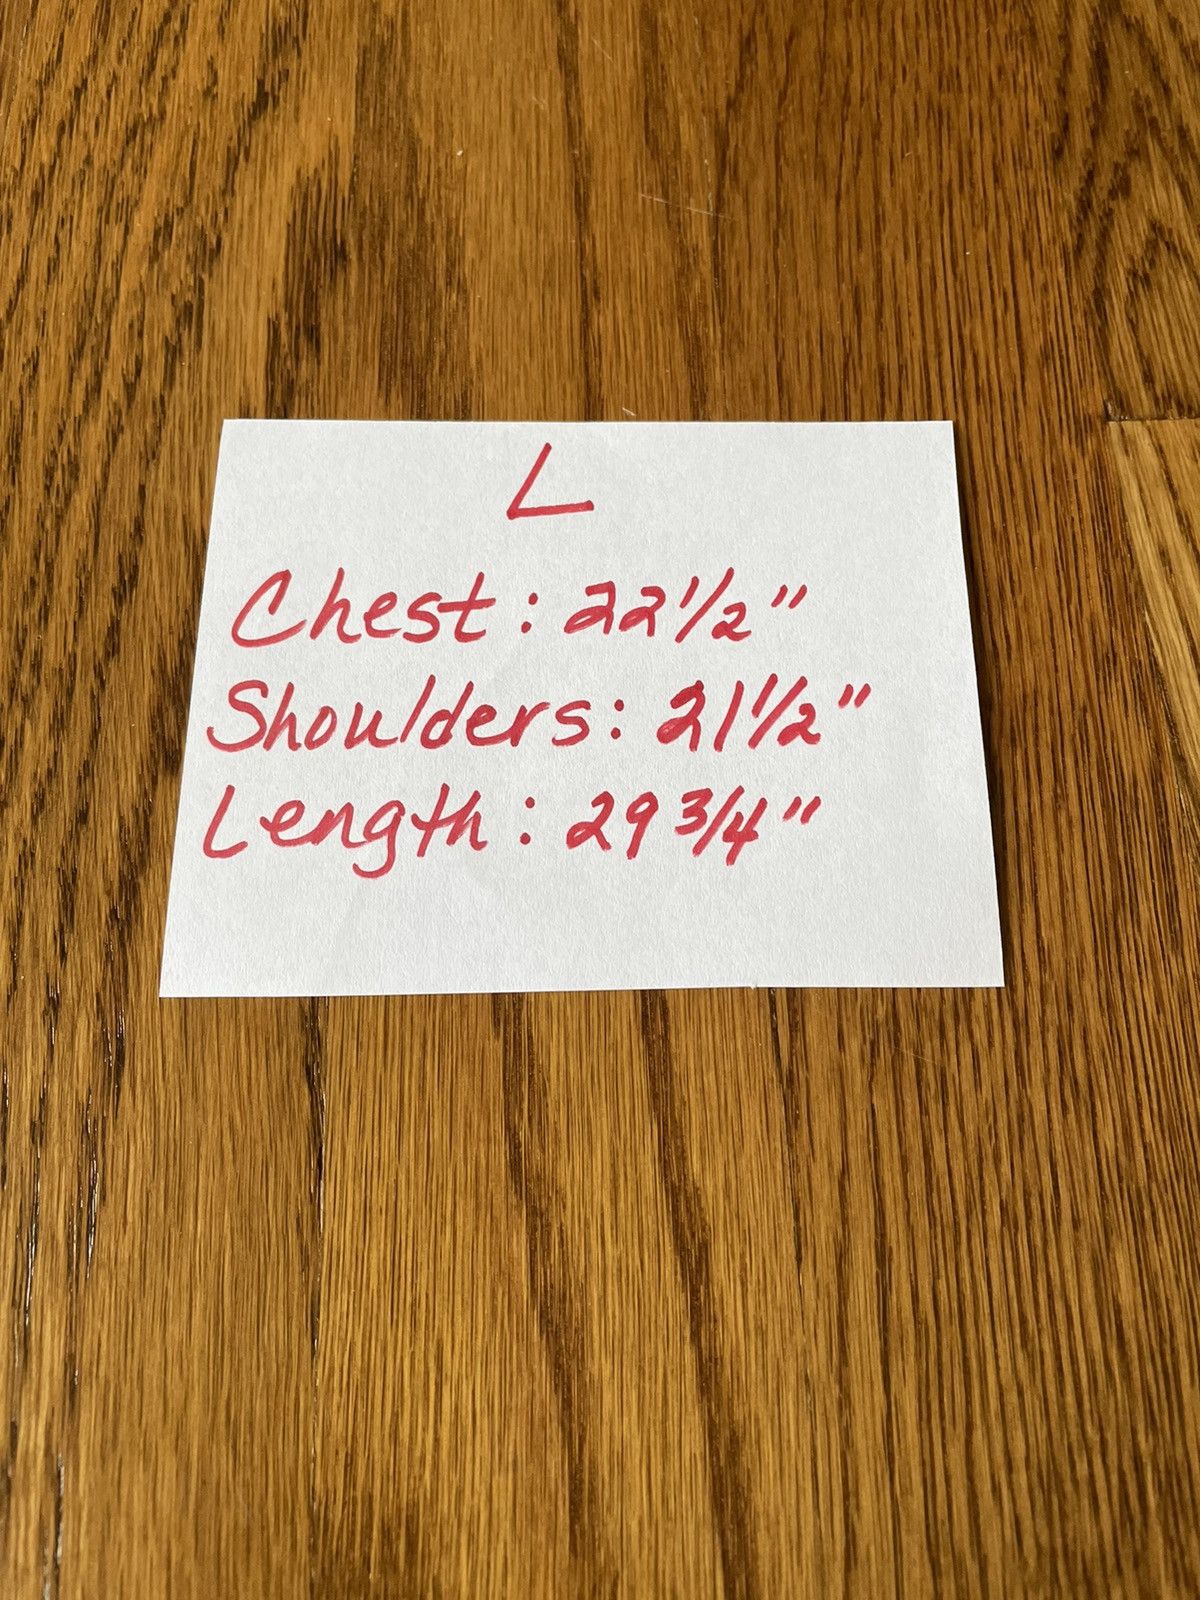 L
Chest: 22 1/2"
Shoulders: 21 1/2"
Length: 29 3/4"